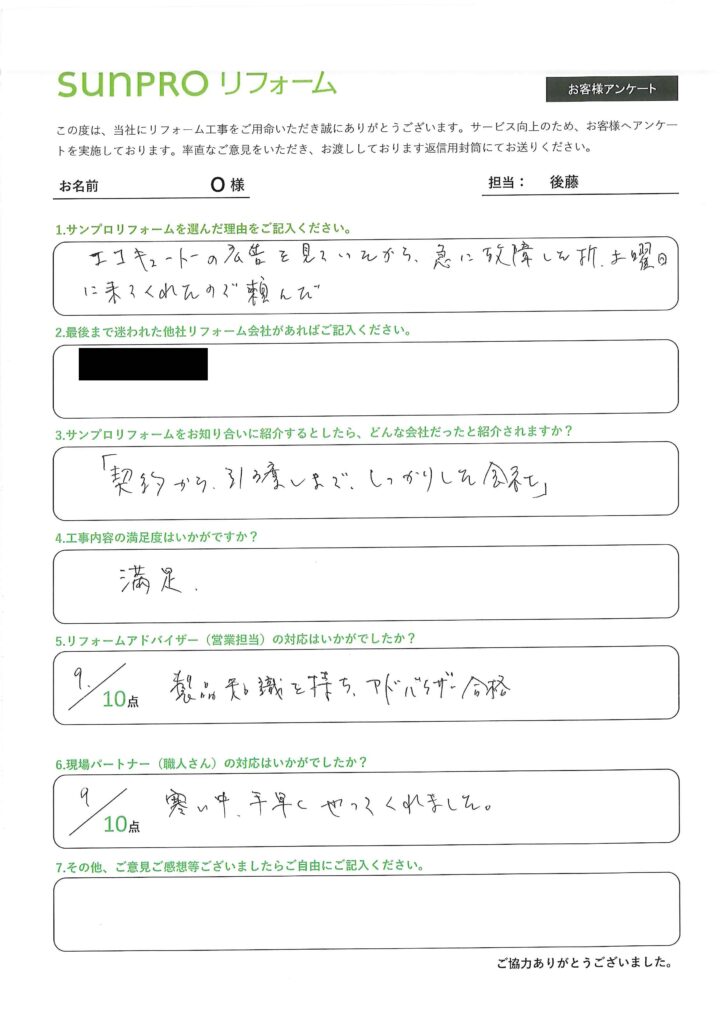 sunPRO リフォーム
お客様アンケート
この度は、当社にリフォーム工事をご用命いただき誠にありがとうございます。サービス向上のため、お客様へアンケー
トを実施しております。率直なご意見をいただき、お渡ししております返信用封筒にてお送りください。
お名前 O 様
担当： 後藤
1.サンプロリフォームを選んだ理由をご記入ください。
エコキュートーの広告を見ていたから、急に故障した折、土曜日
に来てくれたので頼んだ
2.最後まで迷われた他社リフォーム会社があればご記入ください。
3.サンプロリフォームをお知り合いに紹介するとしたら、どんな会社だったと紹介されますか？
「契約から、引き渡しまで、しっかりした会社」
4.工事内容の満足度はいかがですか？
満足.
5.リフォームアドバイザー（営業担当）の対応はいかがでしたか？
9. / 10点 製品知識を持ち、アドバイザー合格
6.現場パートナー（職人さん）の対応はいかがでしたか？
9 / 10点 寒い中、手早くやってくれました。
7.その他、ご意見ご感想等ございましたらご自由にご記入ください。
ご協力ありがとうございました。